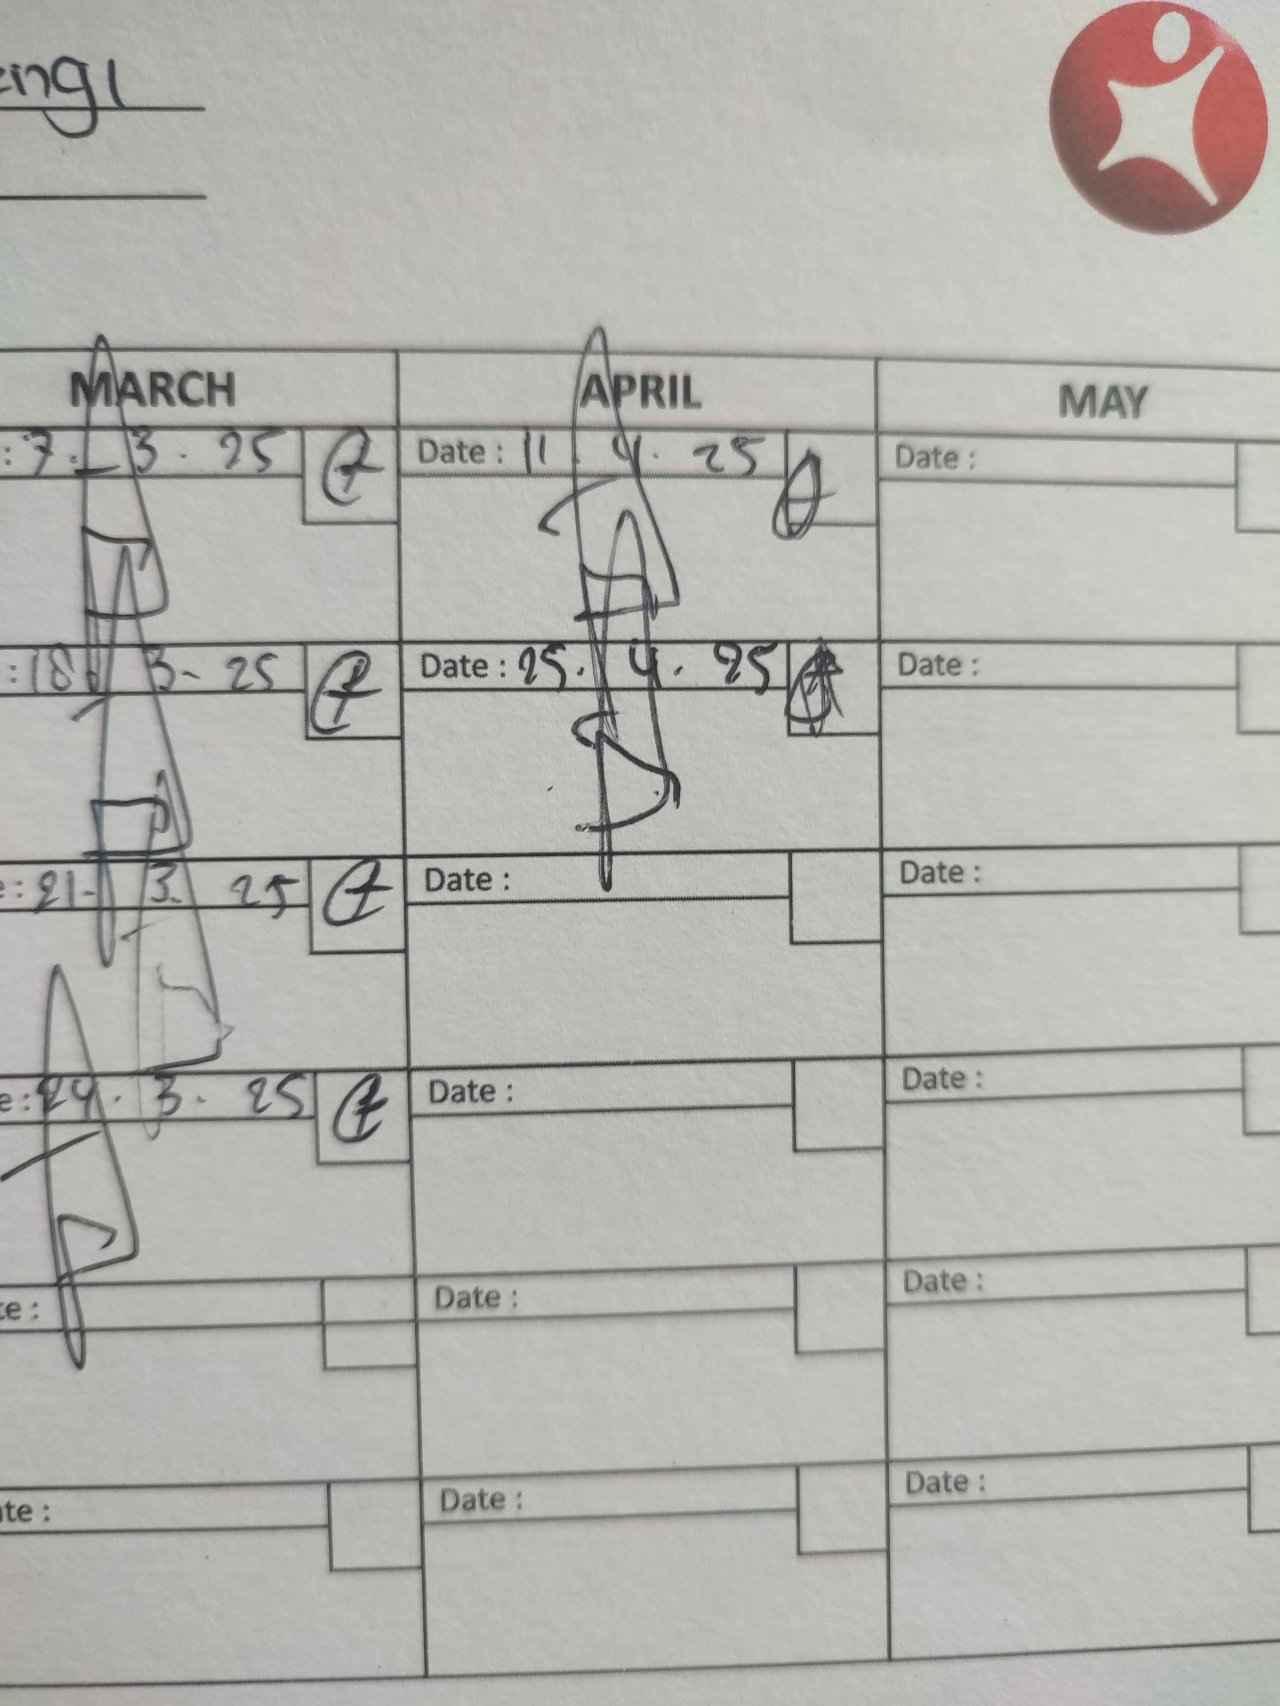 MARCH APRIL MAY
: 7. 3. 25 Date : 11. 4. 25 Date :
: 18 3- 25 Date : 25. 4. 25 Date :
e : 21- 3. 25 Date : Date :
e : 24. 3. 25 Date : Date :
te : Date : Date :
ate : Date : Date :